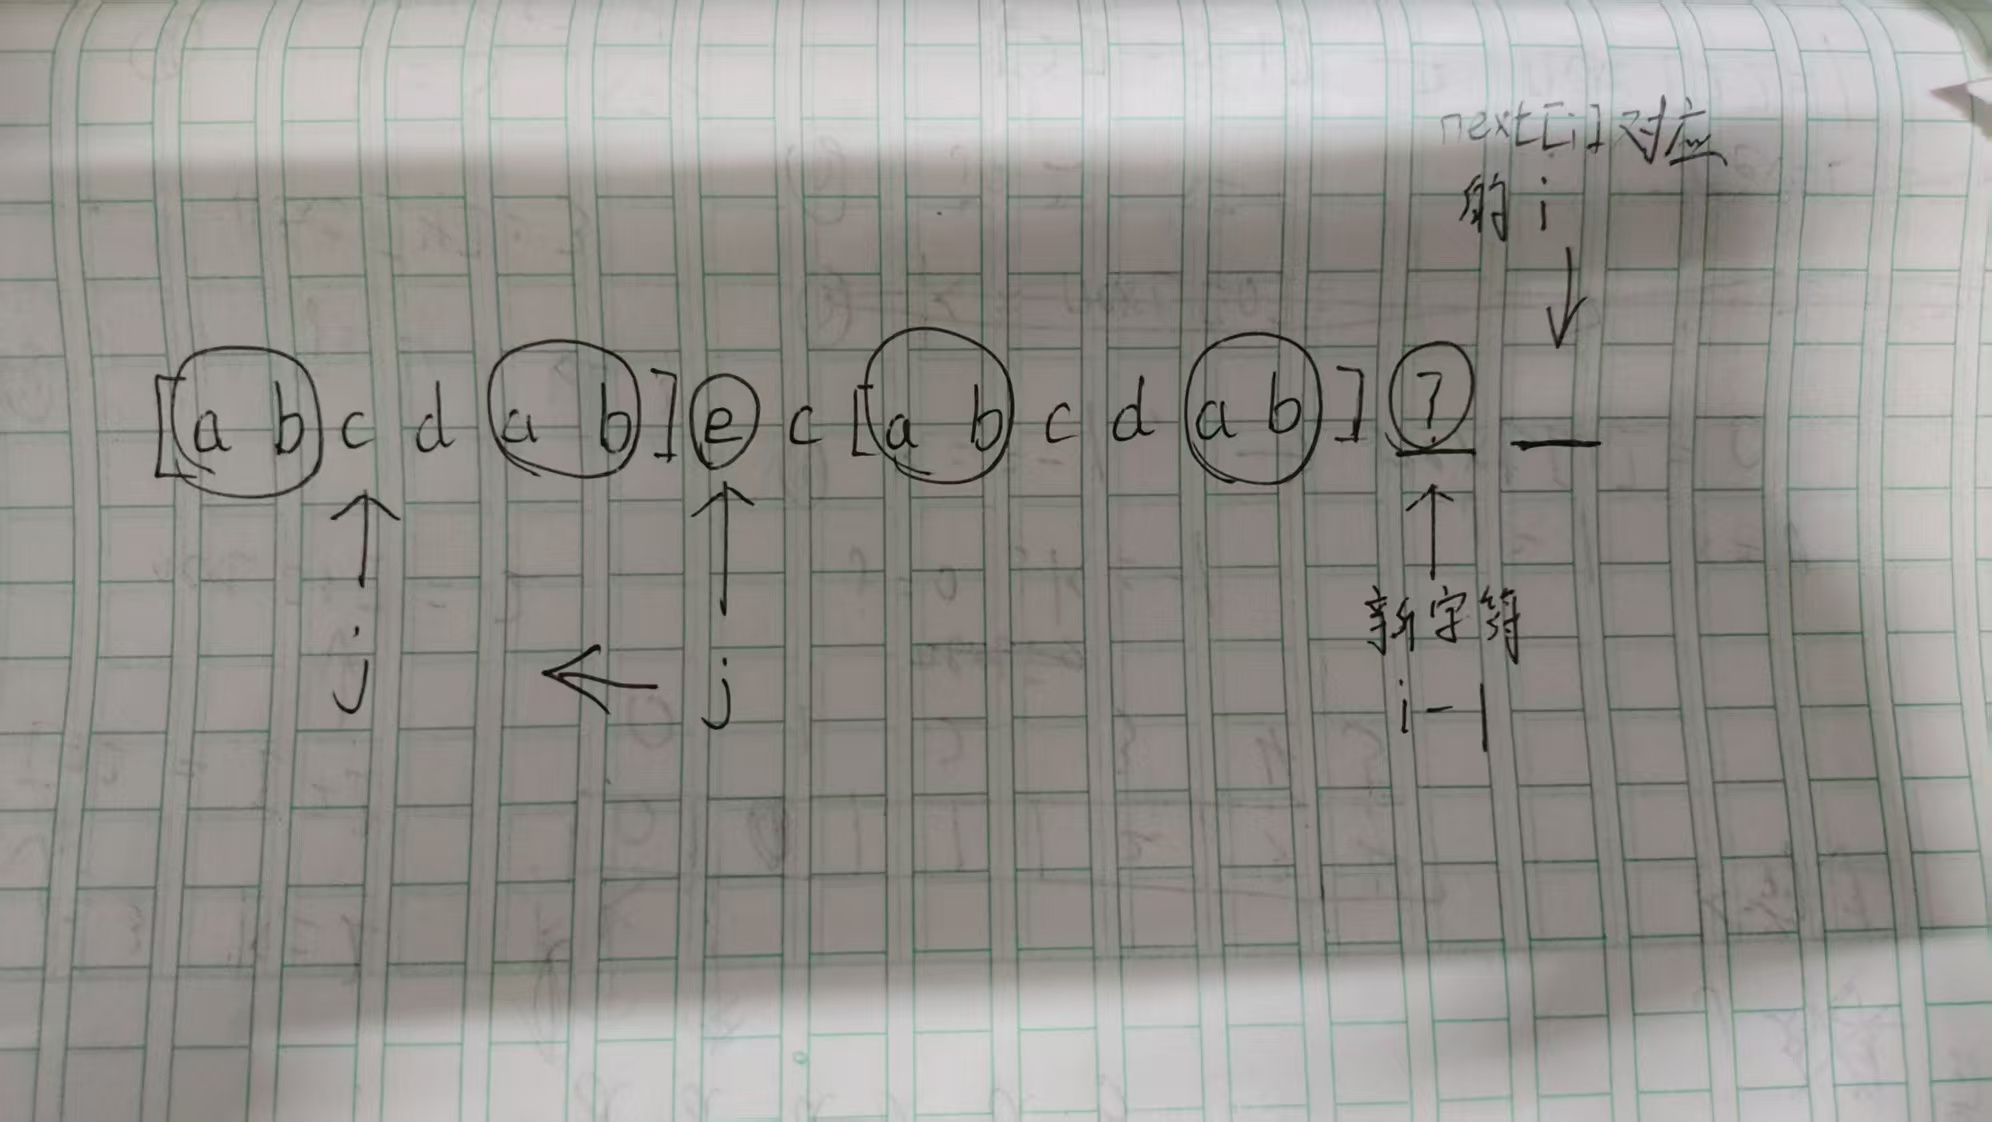 next[i]对应
的i
[a b c d a b] e c [a b c d a b] ?
j
j
新字符
i-1